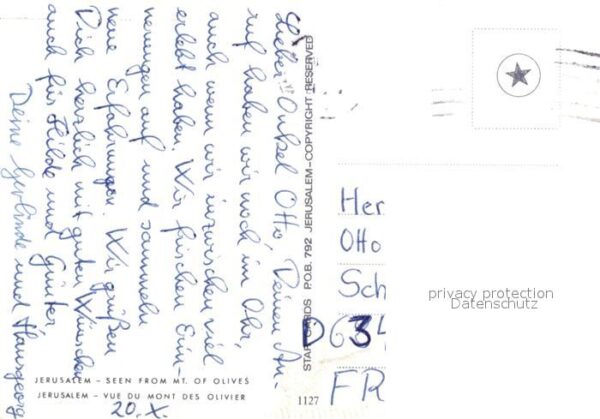 Lieber Onkel Otto, Deinen An-
ruf haben wir noch im Ohr,
auch wenn wir inzwischen viel
erlebt haben. Wir frischen Erin-
nerungen auf und sammeln
neue Erfahrungen. Wir grüßen
Dich herzlich mit guten Wünschen
auch für Hilde und Günter
Deine Gerlinde und Hansgeorg
20. X.
JERUSALEM – SEEN FROM MT. OF OLIVES
JERUSALEM – VUE DU MONT DES OLIVIER
1127
STAR CARDS P.O.B. 792 JERUSALEM–COPYRIGHT RESERVED
Her
Otto
Sch
D634
FR
privacy protection
Datenschutz